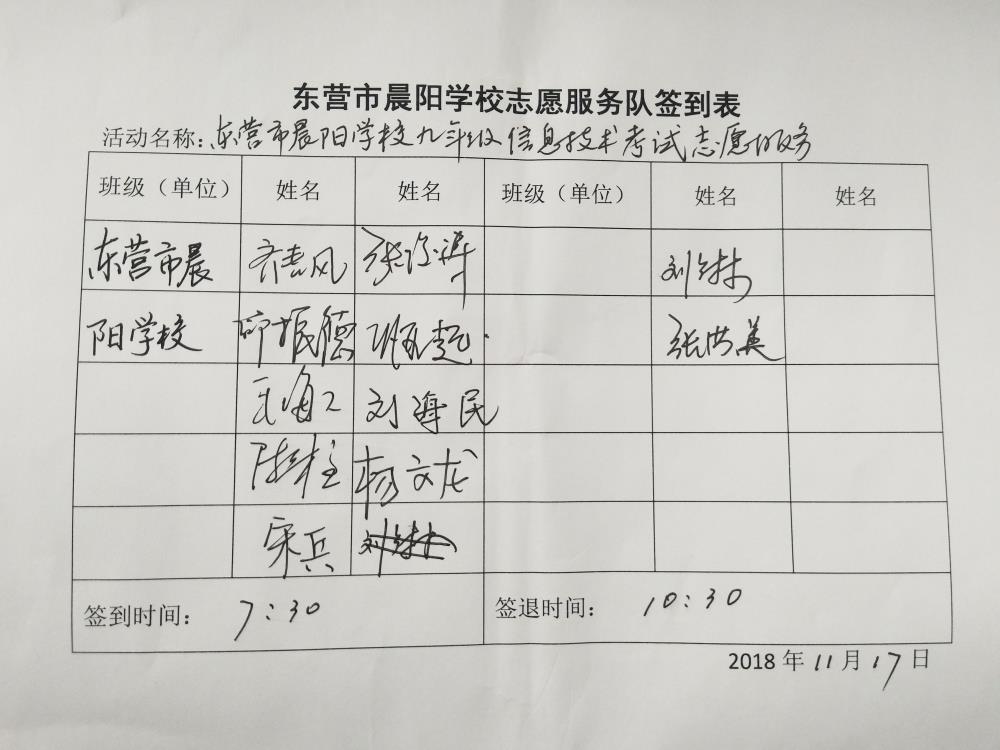 东营市晨阳学校志愿服务队签到表
活动名称:东营市晨阳学校九年级信息技术考试志愿服务
班级（单位） 姓名 姓名 班级（单位） 姓名 姓名
东营市晨 齐志风 刘铁林
阳学校 邱振德 张洪美
刘海民
陈维柱 杨文龙
宋兵
签到时间： 7:30 签退时间： 10:30
2018年11月17日